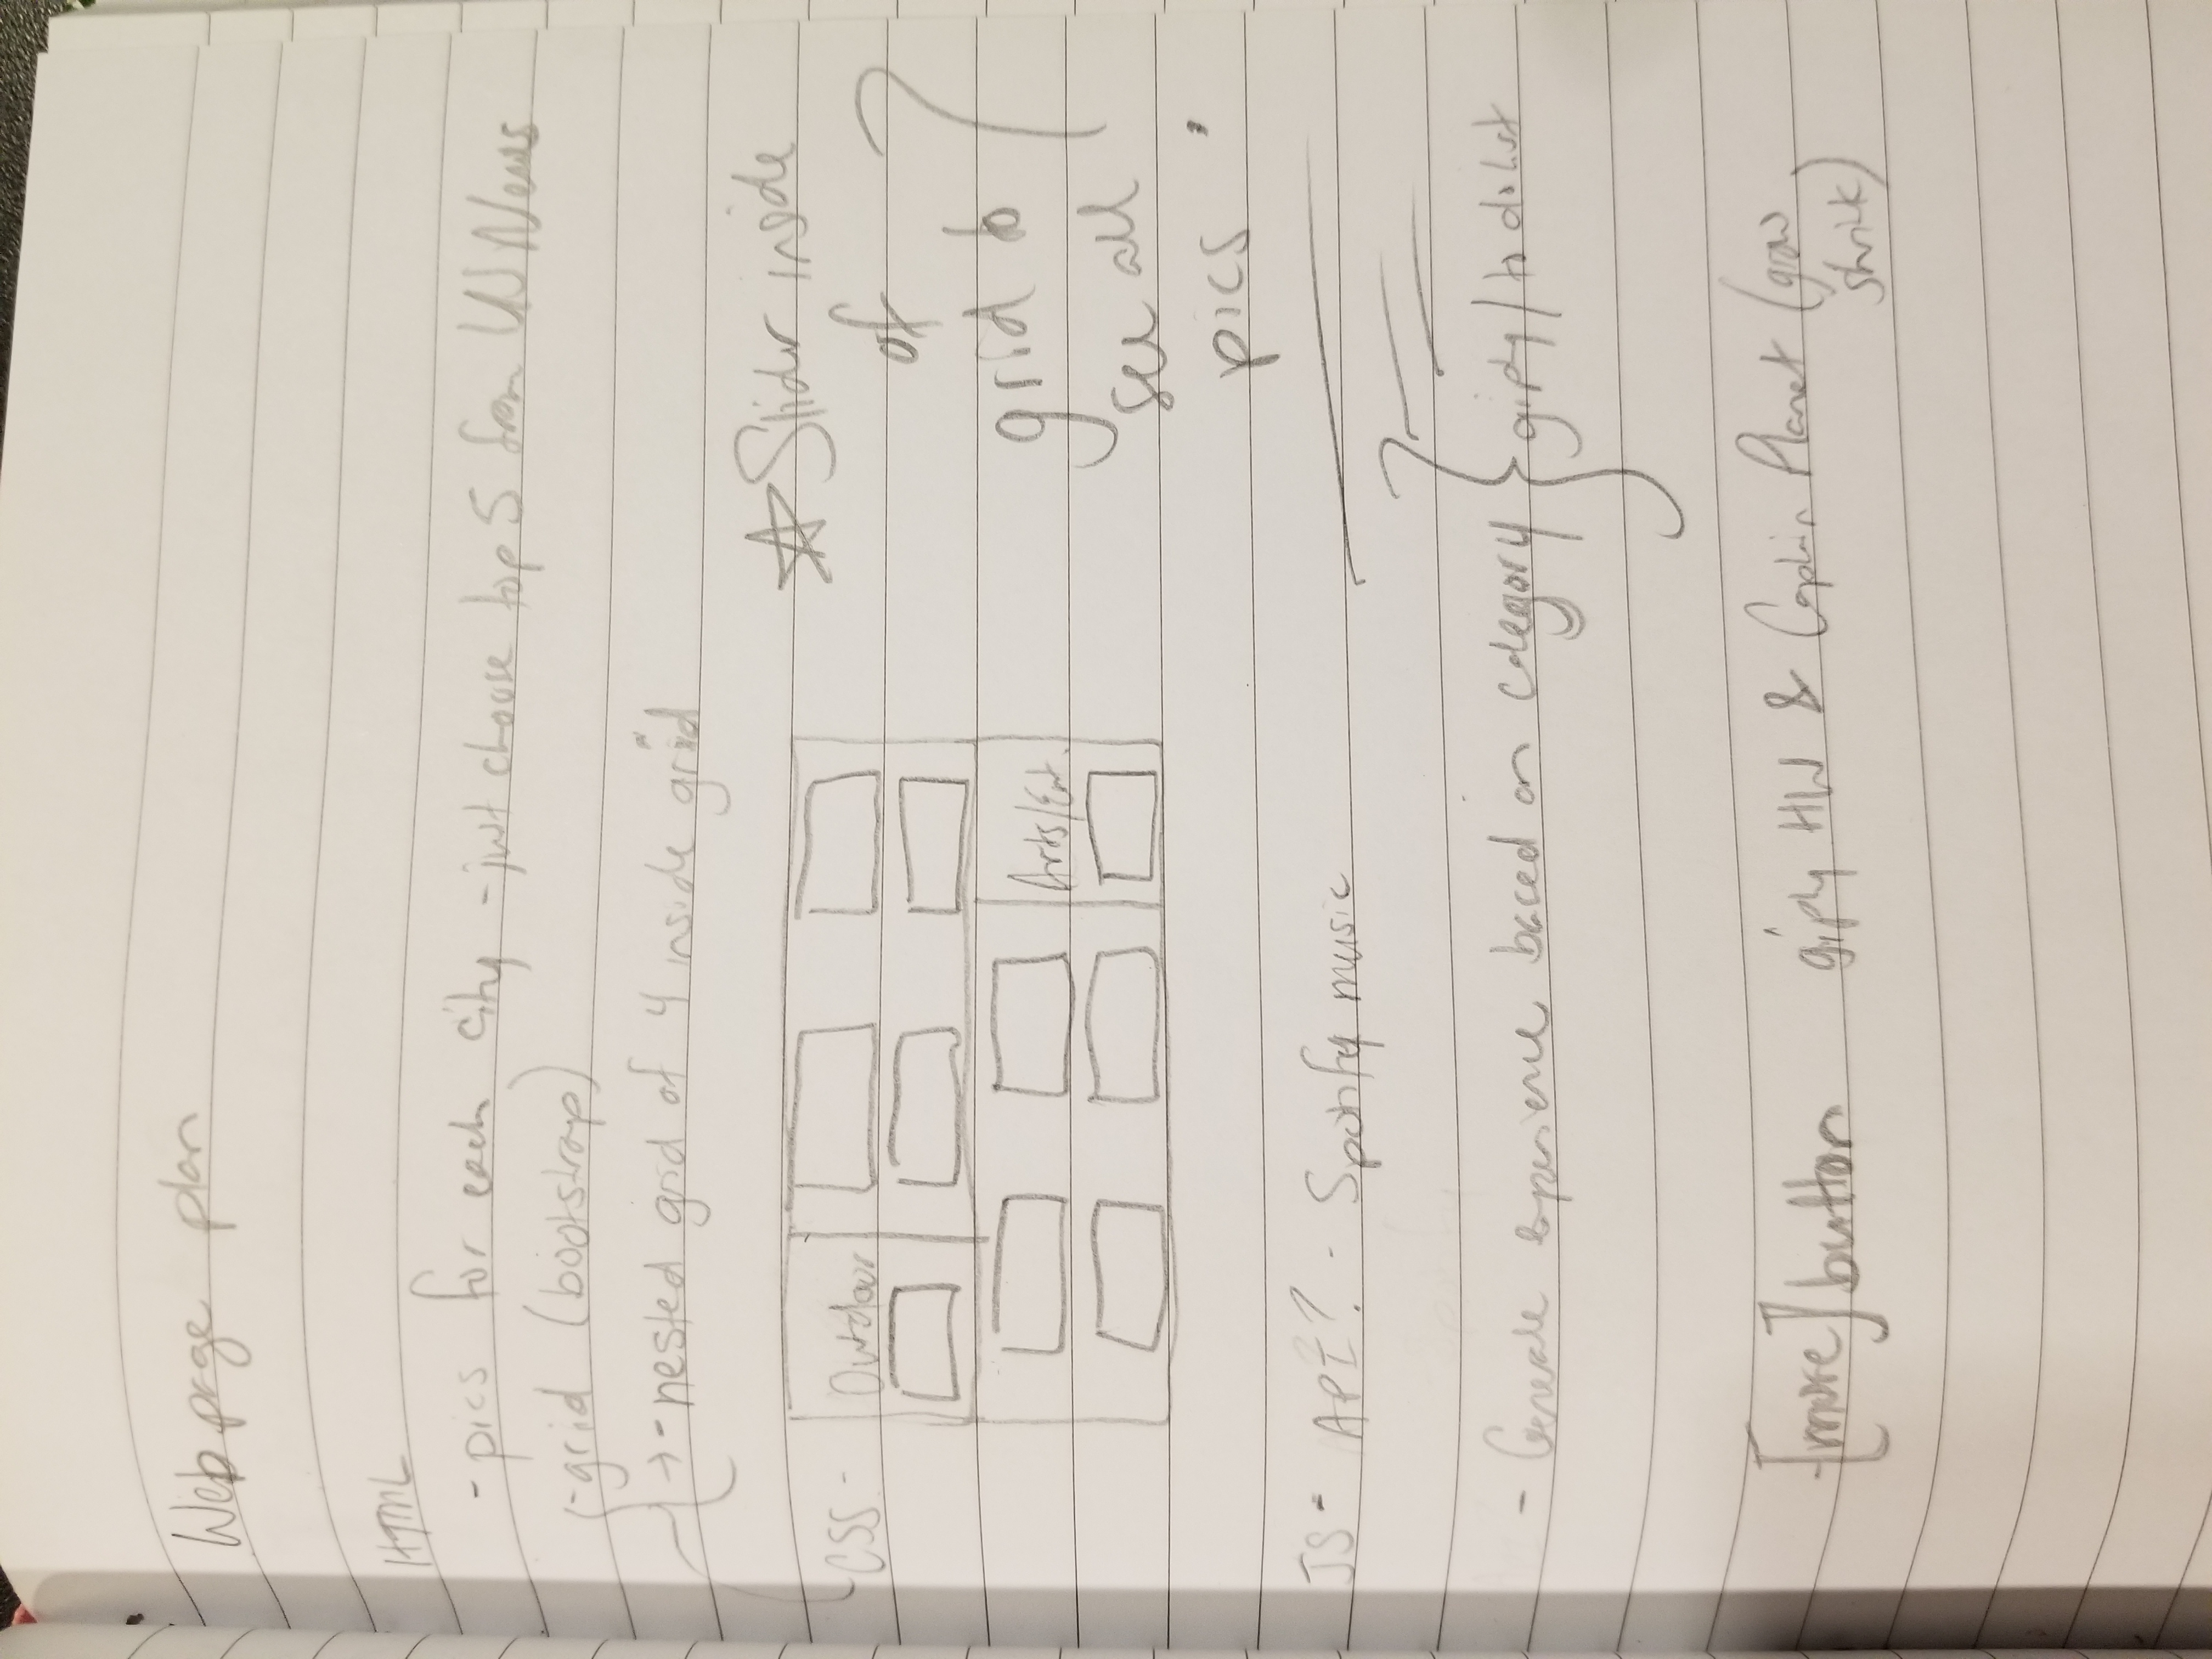 Webpage plan
HTML
- pics for each city - just choose top 5 from US News
- grid (bootstrap)
→ - nested grid of 4 inside grid
☆ Slider inside
of
grid to
see all
pics ?
CSS -
Outdoor
Arts/Ent.
JS - API? - Spotify music
- Generate experience based on category } giphy / to do list
- [more] button giphy HW & Captain Planet (grow
shrink)